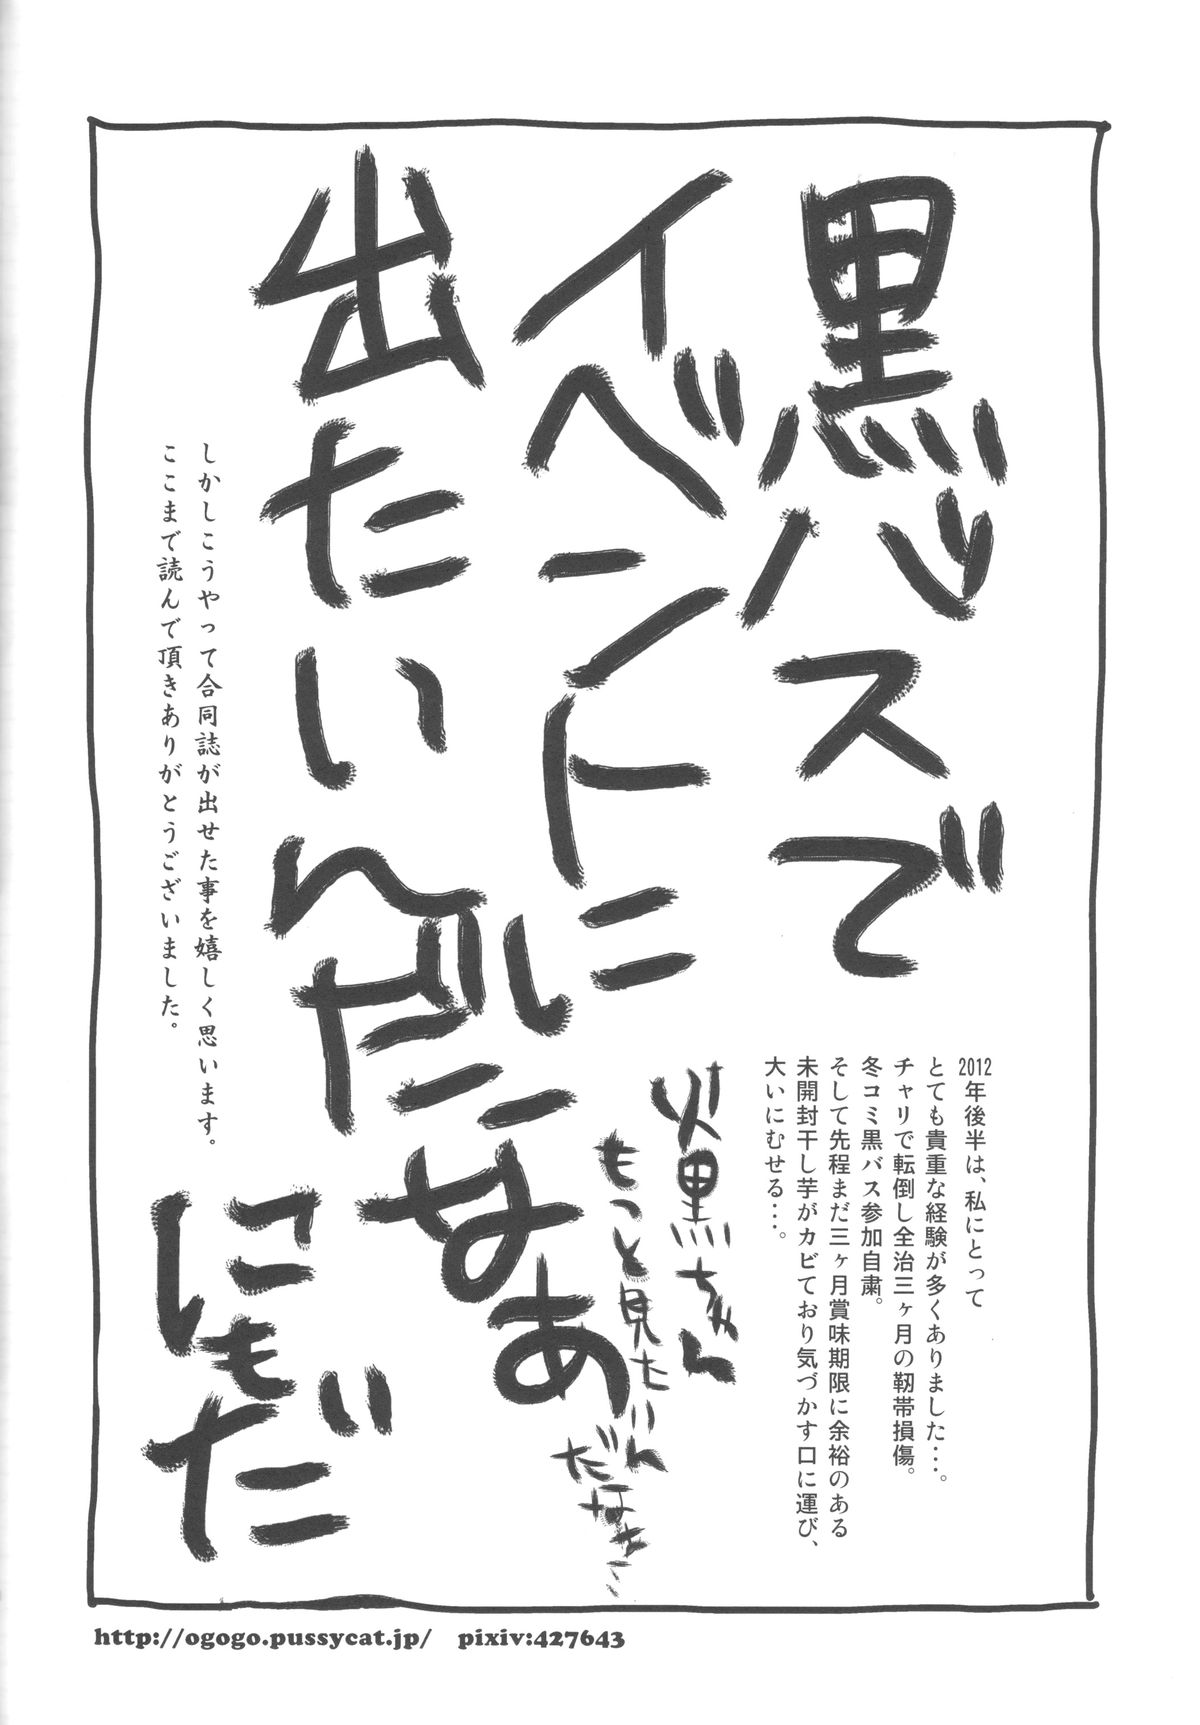 黒バスで
イベントに
出たいんだなあ
2012年後半は、私にとって
とても貴重な経験が多くありました…。
チャリで転倒し全治三ヶ月の靭帯損傷。
冬コミ黒バス参加自粛。
そして先程まだ三ヶ月賞味期限に余裕のある
未開封干し芋がカビており気づかす口に運び、
大いにむせる…。
火黒ちゃん
もっと見たいん
だなあ…
しかしこうやって合同誌が出せた事を嬉しく思います。
ここまで読んで頂きありがとうございました。
にもだ
http://ogogo.pussycat.jp/ pixiv:427643